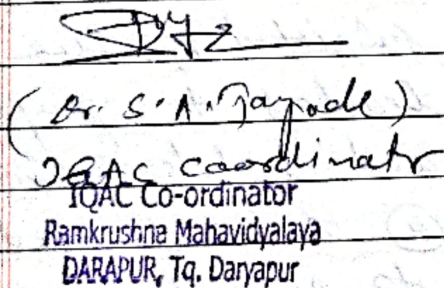 (Dr. S. A. Tayade)
IQAC Coordinator
IQAC Co-ordinator
Ramkrushna Mahavidyalaya
DARAPUR, Tq. Daryapur